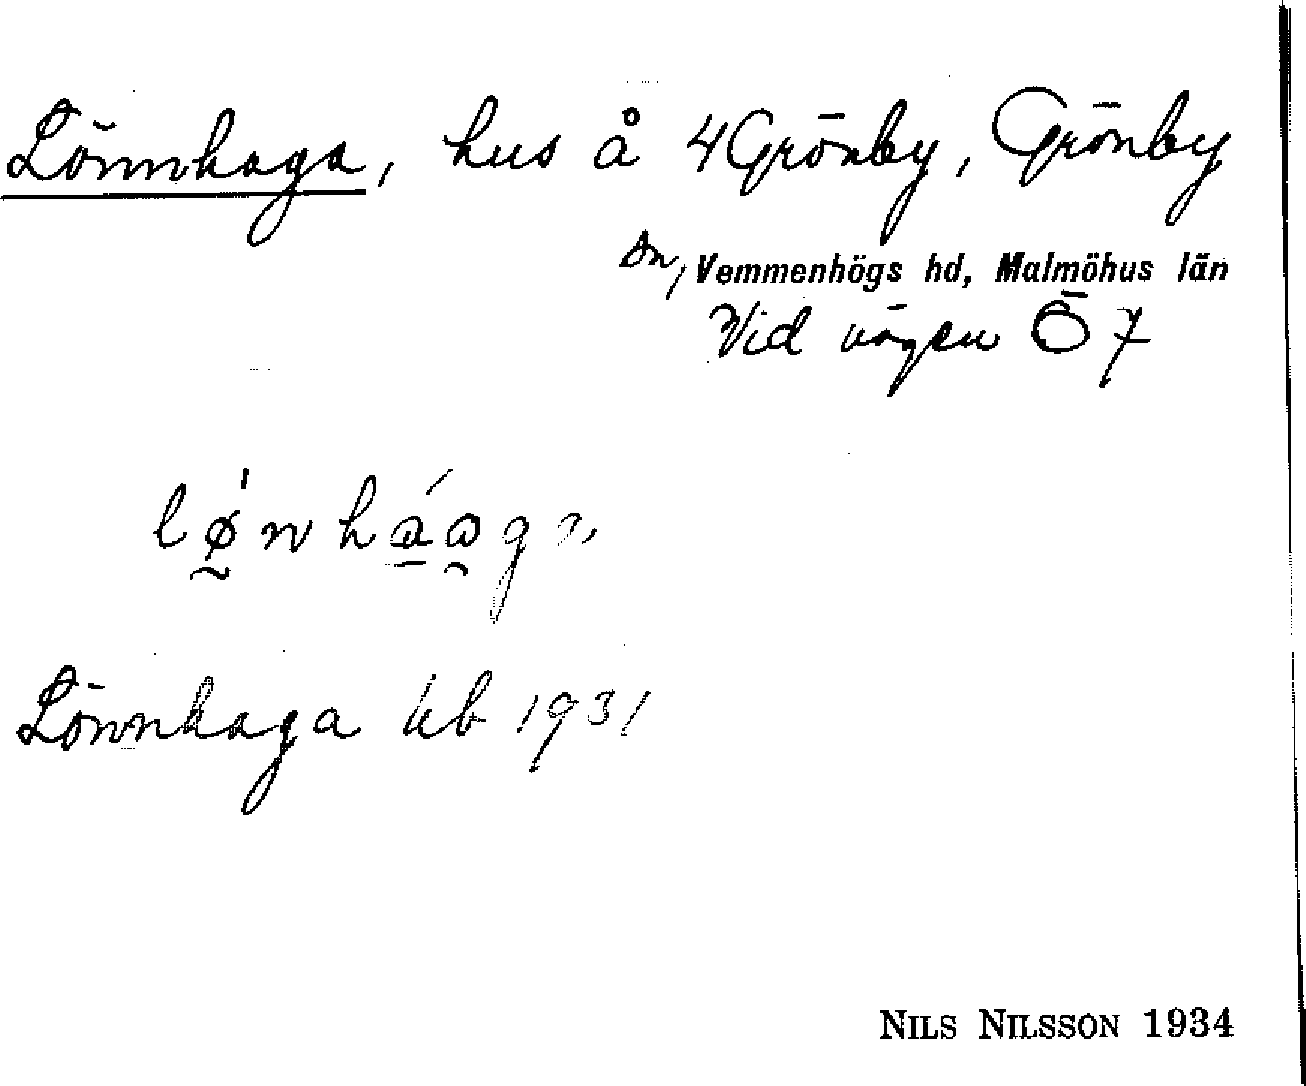 Lönnhaga, hus å 4 Grönby, Grönby
sn, Vemmenhögs hd, Malmöhus län
Vid vägen Ö 7
Lönnhaga kb 1931
NILS NILSSON 1934